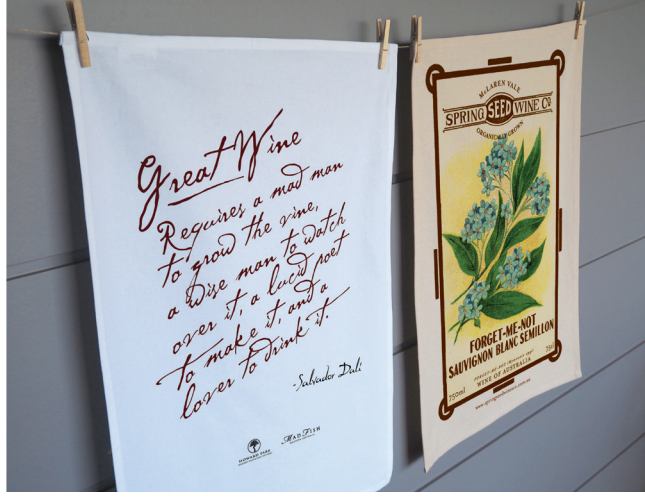 Great Wine
Requires a mad man
to grow the vine,
a wise man to watch
over it, a lucid poet
to make it, and a
lover to drink it.
-Salvador Dali
HOWARD PARK
MAD FISH
McLAREN VALE
SPRING SEED WINE Co
ORGANICALLY GROWN
FORGET-ME-NOT
SAUVIGNON BLANC SEMILLON
WINE OF AUSTRALIA
750ml
www.springseedwineco.com.au